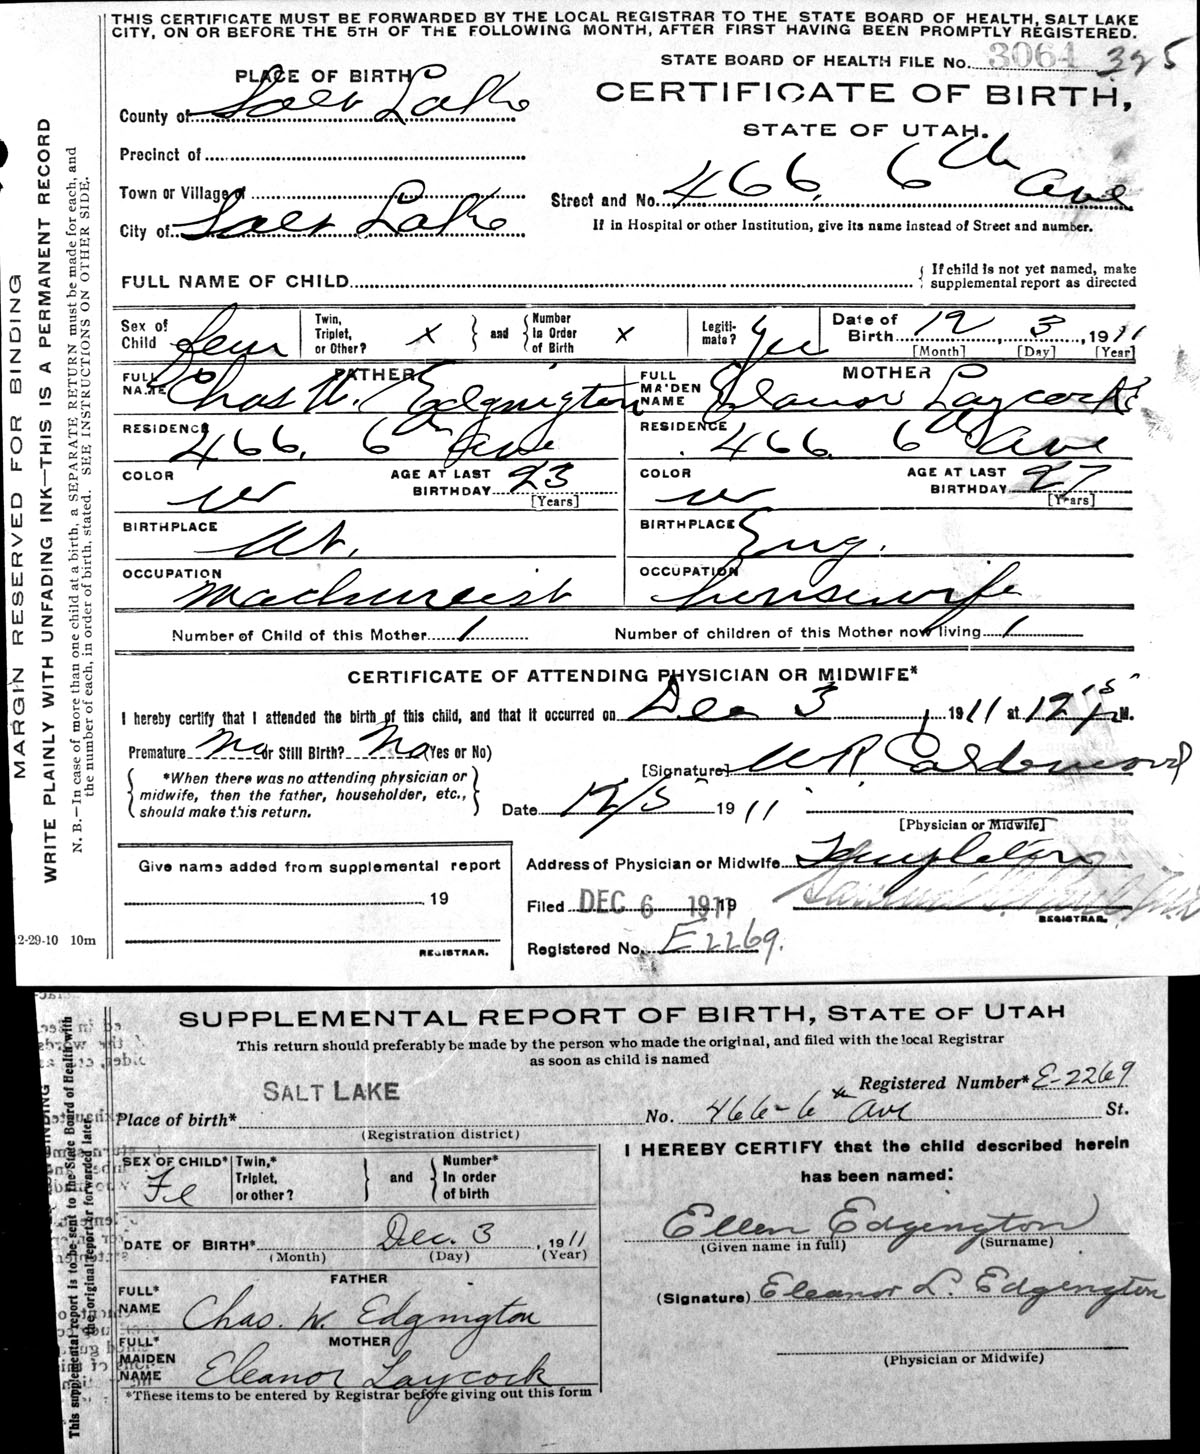 THIS CERTIFICATE MUST BE FORWARDED BY THE LOCAL REGISTRAR TO THE STATE BOARD OF HEALTH, SALT LAKE
CITY, ON OR BEFORE THE 5TH OF THE FOLLOWING MONTH, AFTER FIRST HAVING BEEN PROMPTLY REGISTERED.
STATE BOARD OF HEALTH FILE No. 3064 325
PLACE OF BIRTH
CERTIFICATE OF BIRTH,
STATE OF UTAH.
County of Salt Lake
Precinct of
Town or Village of
Street and No. 466 6th Ave
City of Salt Lake
If in Hospital or other Institution, give its name instead of Street and number.
FULL NAME OF CHILD
If child is not yet named, make
supplemental report as directed
Sex of Child Fem
Twin, Triplet, or Other? X and Number In Order of Birth X
Legitimate? Yes
Date of Birth 12 3, 1911
[Month] [Day] [Year]
FATHER
FULL NAME Chas W. Edgington
MOTHER
FULL MAIDEN NAME Eleanor Laycock
RESIDENCE 466. 6th Ave
RESIDENCE 466 6th Ave
COLOR W AGE AT LAST BIRTHDAY 23 [Years]
COLOR W AGE AT LAST BIRTHDAY 27 [Years]
BIRTHPLACE Ut.
BIRTHPLACE Eng.
OCCUPATION Machineist
OCCUPATION housewife
Number of Child of this Mother 1
Number of children of this Mother now living 1
CERTIFICATE OF ATTENDING PHYSICIAN OR MIDWIFE*
I hereby certify that I attended the birth of this child, and that it occurred on Dec 3, 1911 at 12 15 P M.
Premature No or Still Birth? No (Yes or No)
*When there was no attending physician or
midwife, then the father, householder, etc.,
should make this return.
[Signature] W R Calderwood
Date 12/5 1911
[Physician or Midwife]
Address of Physician or Midwife Templeton
Filed DEC 6 1911 19
REGISTRAR.
Registered No. E2269.
Give name added from supplemental report
19
REGISTRAR.
12-29-10 10m
MARGIN RESERVED FOR BINDING
WRITE PLAINLY WITH UNFADING INK—THIS IS A PERMANENT RECORD
N. B.—In case of more than one child at a birth, a SEPARATE RETURN must be made for each, and
the number of each, in order of birth, stated. SEE INSTRUCTIONS ON OTHER SIDE.
SUPPLEMENTAL REPORT OF BIRTH, STATE OF UTAH
This return should preferably be made by the person who made the original, and filed with the local Registrar
as soon as child is named
SALT LAKE
Registered Number* E-2269
Place of birth* No. 466-6th Ave St.
(Registration district)
SEX OF CHILD* Fe
Twin,* Triplet, or other? and Number* In order of birth
I HEREBY CERTIFY that the child described herein
has been named:
Ellen Edgington
(Given name in full) (Surname)
DATE OF BIRTH* Dec. 3, 1911
(Month) (Day) (Year)
FATHER
FULL* NAME Chas. W. Edgington
(Signature) Eleanor L. Edgington
MOTHER
FULL* MAIDEN NAME Eleanor Laycock
(Physician or Midwife)
*These items to be entered by Registrar before giving out this form
This supplemental report is to be sent to the State Board of Health with
the original report or forwarded later.